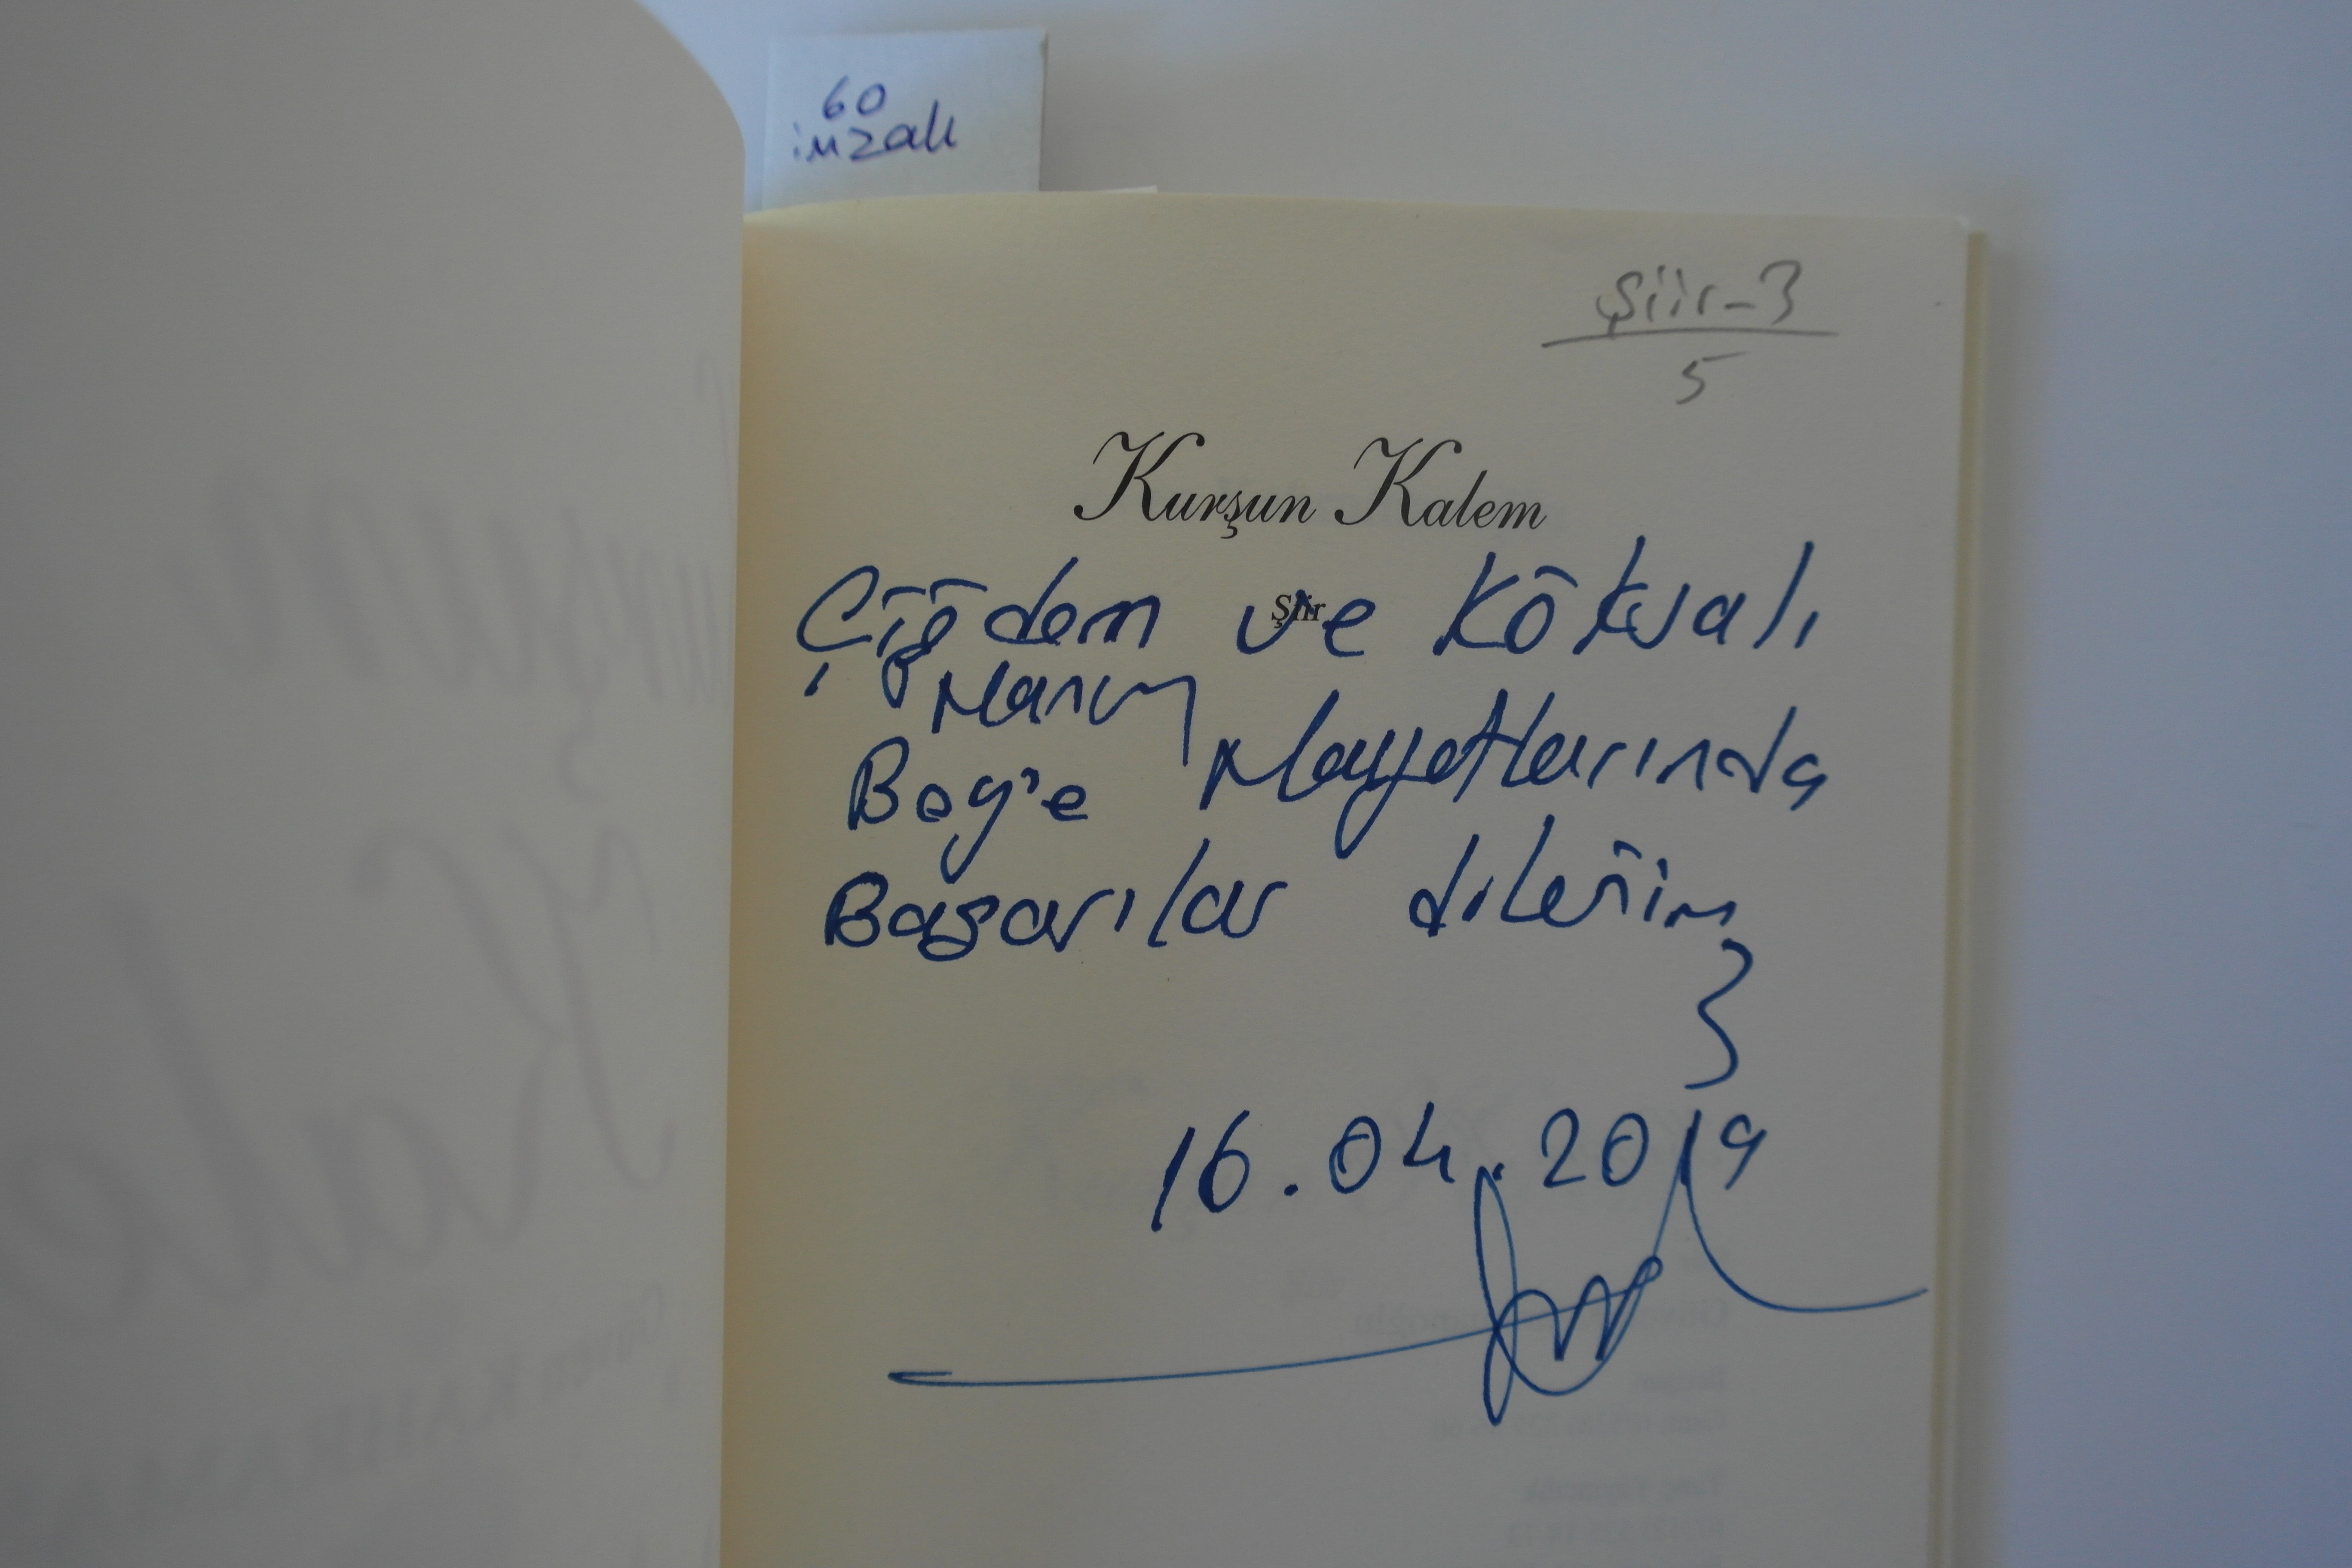 60
imzalı
Şiir-3
5
Kurşun Kalem
Şiir
Çiğdem ve Köksal
Hanım
Bey'e Hayatlarında
Başarılar dilerim
16.04.2019